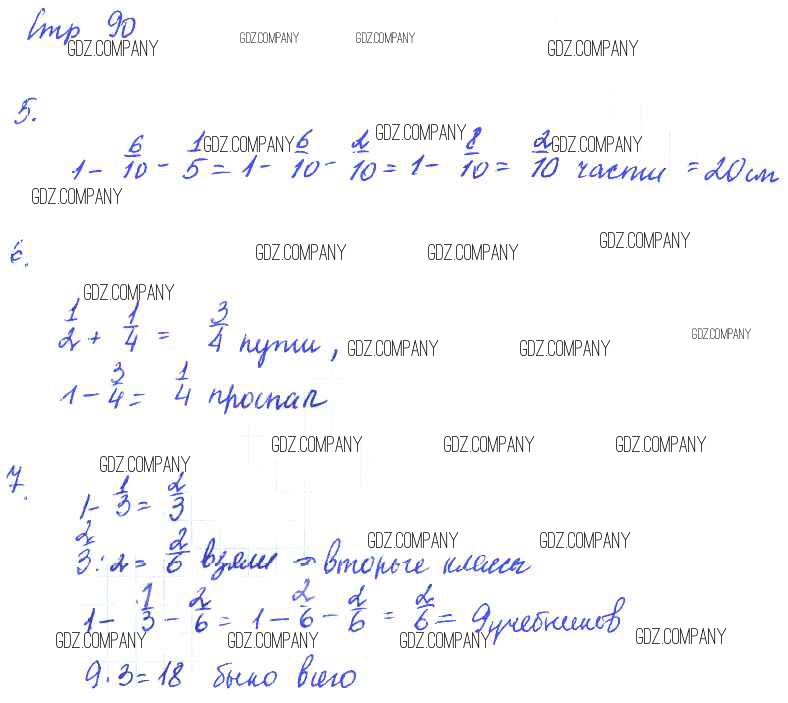 Стр 90
GDZ.COMPANY GDZ.COMPANY GDZ.COMPANY GDZ.COMPANY
5.
1 - 6/10 - 1/5 = 1 - 6/10 - 2/10 = 1 - 8/10 = 2/10 части = 20 см
GDZ.COMPANY GDZ.COMPANY GDZ.COMPANY
GDZ.COMPANY
6.
GDZ.COMPANY GDZ.COMPANY GDZ.COMPANY
GDZ.COMPANY
1/2 + 1/4 = 3/4 пути,
GDZ.COMPANY GDZ.COMPANY GDZ.COMPANY
1 - 3/4 = 1/4 проспал
GDZ.COMPANY GDZ.COMPANY GDZ.COMPANY
7.
GDZ.COMPANY
1 - 1/3 = 2/3
2/3 : 2 = 2/6 взяли - вторые классы
GDZ.COMPANY GDZ.COMPANY
1 - 1/3 - 2/6 = 1 - 2/6 - 2/6 = 2/6 = 9 учебников
GDZ.COMPANY GDZ.COMPANY GDZ.COMPANY GDZ.COMPANY
9 · 3 = 18 было всего